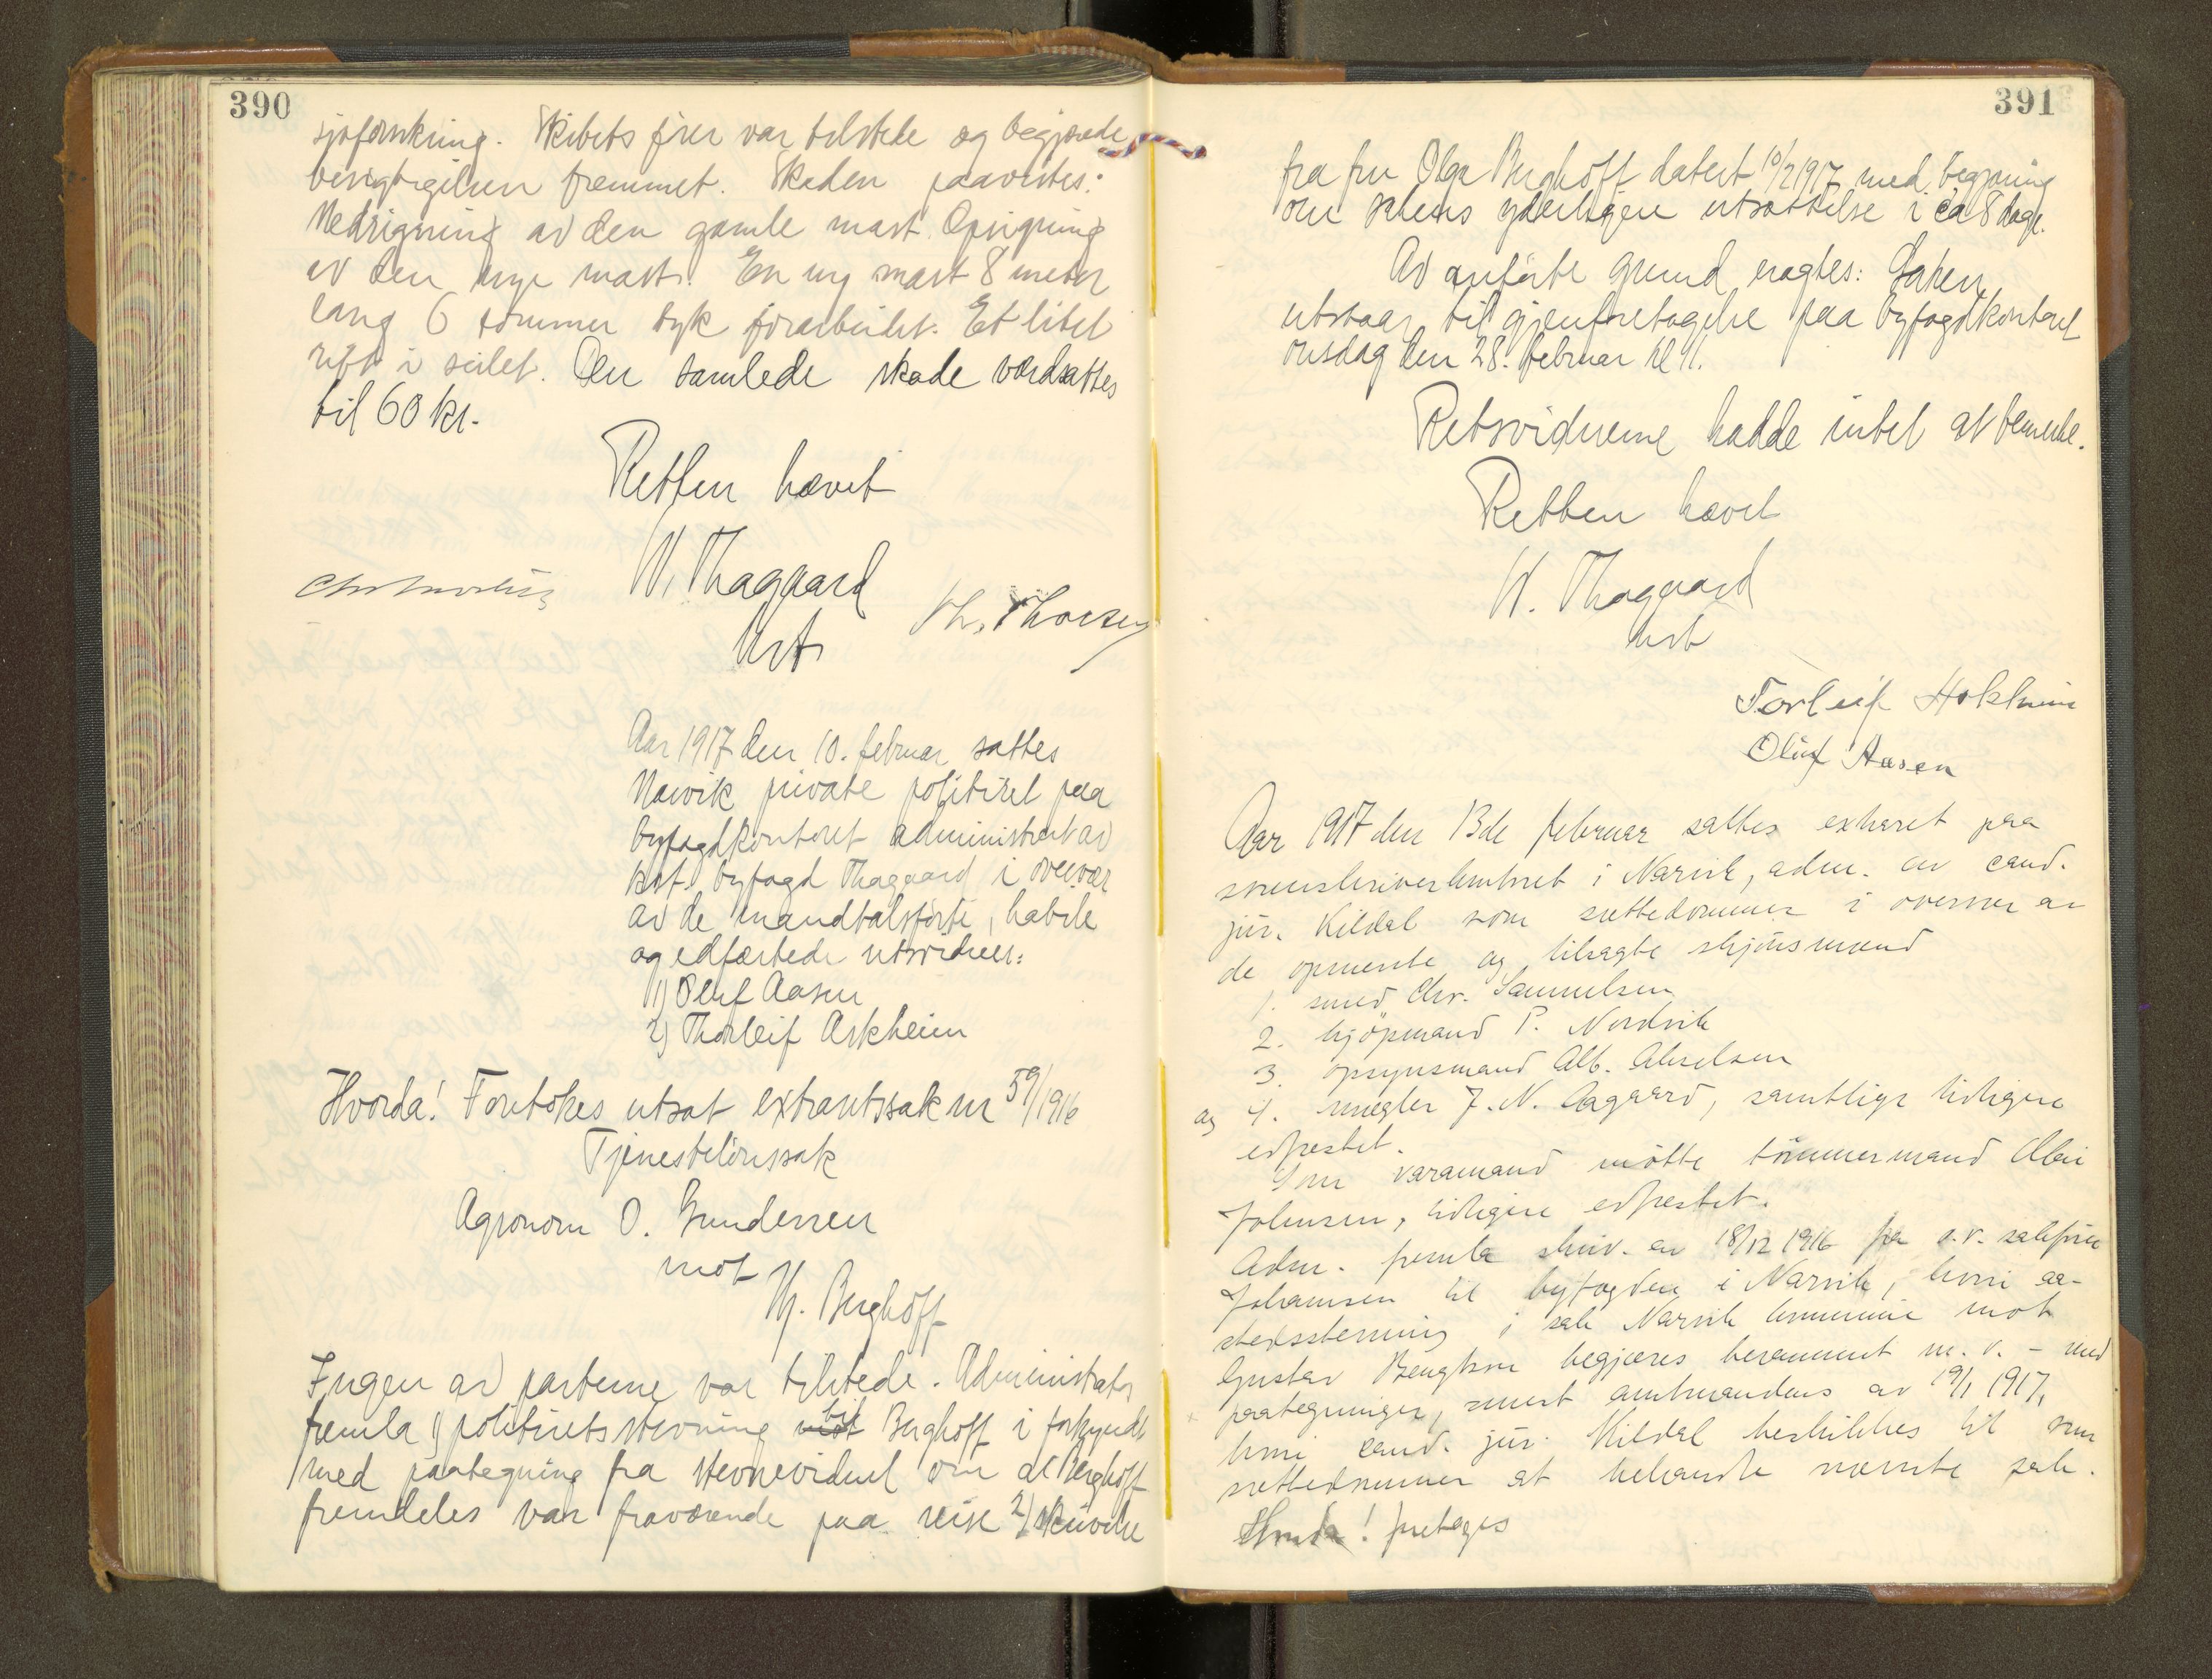 390
sjøforsikring. Skibets fører var tilstede og begjærede
besigtigelsen fremmet. Skaden paavistes:
Nedrigning av den gamle mast. Oprigning
av den nye mast. En ny mast 8 meter
lang 6 tommer tyk forarbeidet. Et litet
rift i seilet. Den samlede skade værdsattes
til 60 kr.
Retten hævet
W. Thagaard
kst.
Th. Thorsen
Aar 1917 den 10. februar sattes
Narvik private politiret paa
byfogdkontoret administrert av
kst. byfogd Thagaard i overvær
av de mandtalsførte, habile
og edfæstede retsvidner:
1) Oluf Aasen
2) Thorleif Askheim
Hvorda! Foretokes utsat extraretssak nr 59/1916
Tjenestelønssak
Agronom O. Gundersen
mot
Th. Berghoff
Ingen av parterne var tilstede. Administrator
fremla 1) politiretsstevning mot til Berghoff i forkyndt
med paategning fra stevnevidnet om at Berghoff
fremdeles var fraværende paa reise 2) skrivelse
391
fra fru Olga Berghoff datert 10/2 1917 med begjæring
om sakens yderligere utsættelse i ca 8 dage.
Av anførte grund eragtes: Saken
utstaar til gjenforetagelse paa byfogdkontoret
onsdag den 28. februar kl 11.
Retsvidnerne hadde intet at bemerke.
Retten hævet
W. Thagaard
kst
Torleif
Oluf Aasen
Aar 1917 den 13de februar sattes extraret paa
sorenskriverkontoret i Narvik, adm. av cand.
jur. Kildal som settedommer i overvær av
de opnævnte og tilsagte skjønsmænd
1. smed Chr. Samuelsen
2. kjøpmand P. Nordvik
3. opsynsmand Alb. Akselsen
og 4. mægler J. N. Aagaard, samtlige tidligere
edfæstet.
Som varamand møtte tømmermand
Johnsen, tidligere edfæstet.
Adm. fremla skriv. av 18/12 1916 fra o.r. sakfører
Johansen til byfogden i Narvik, hvori aa-
stedsstevning i sak Narvik kommune mot
Gustav Bengtson begjæres berammet m. v. - med
paategninger, senest amtmandens av 19/1 1917,
hvori cand. jur. Kildal beskikkes til som
settedommer at behandle nævnte sak.
Hvorda! foretages